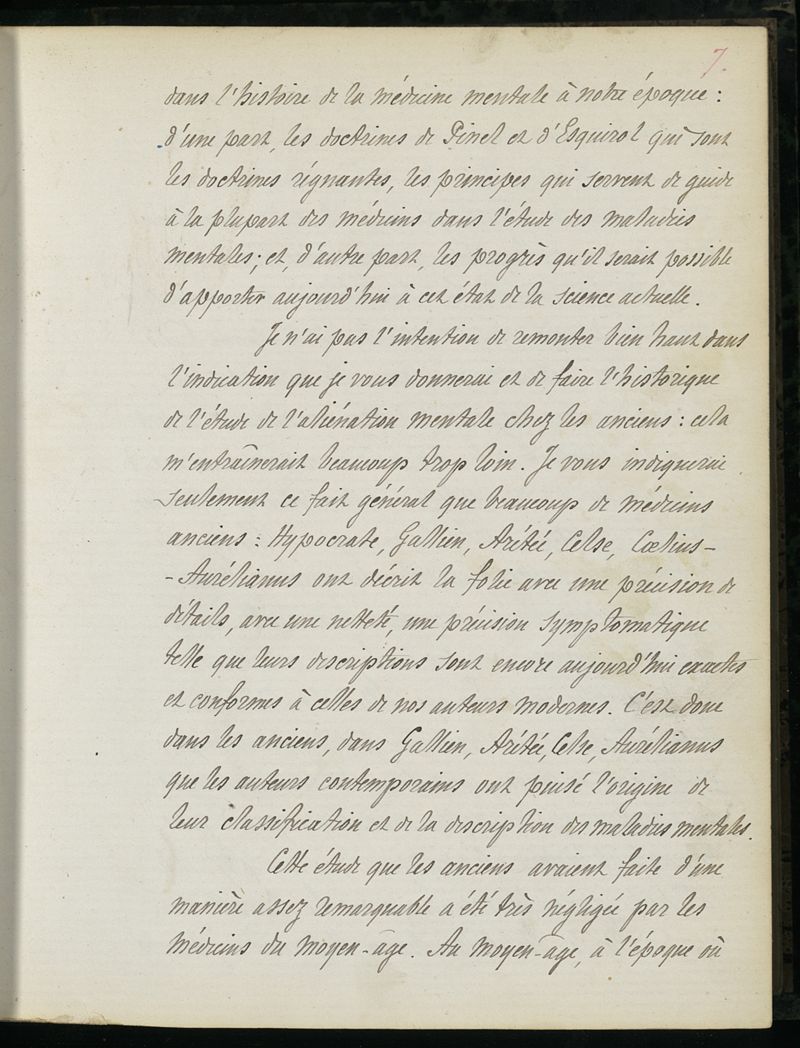 7.
dans l'histoire de la médecine mentale à notre époque :
d'une part, les doctrines de Pinel et d'Esquirol qui sont
les doctrines régnantes, les principes qui servent de guide
à la plupart des médecins dans l'étude des maladies
mentales ; et, d'autre part, les progrès qu'il serait possible
d'apporter aujourd'hui à cet état de la science actuelle.
Je n'ai pas l'intention de remonter bien haut dans
l'indication que je vous donnerai et de faire l'historique
de l'étude de l'aliénation mentale chez les anciens : cela
m'entraînerait beaucoup trop loin. Je vous indiquerai
seulement ce fait général que beaucoup de médecins
anciens : Hypocrate, Gallien, Arétée, Celse, Cœlius-
-Aurélianus ont décrit la folie avec une précision de
détails, avec une netteté, une précision symptomatique
telle que leurs descriptions sont encore aujourd'hui exactes
et conformes à celles de nos auteurs modernes. C'est donc
dans les anciens, dans Gallien, Arétée, Celse, Aurélianus
que les auteurs contemporains ont puisé l'origine de
leur classification et de la description des maladies mentales.
Cette étude que les anciens avaient faite d'une
manière assez remarquable a été très négligée par les
médecins du moyen-âge. Au moyen-âge, à l'époque où